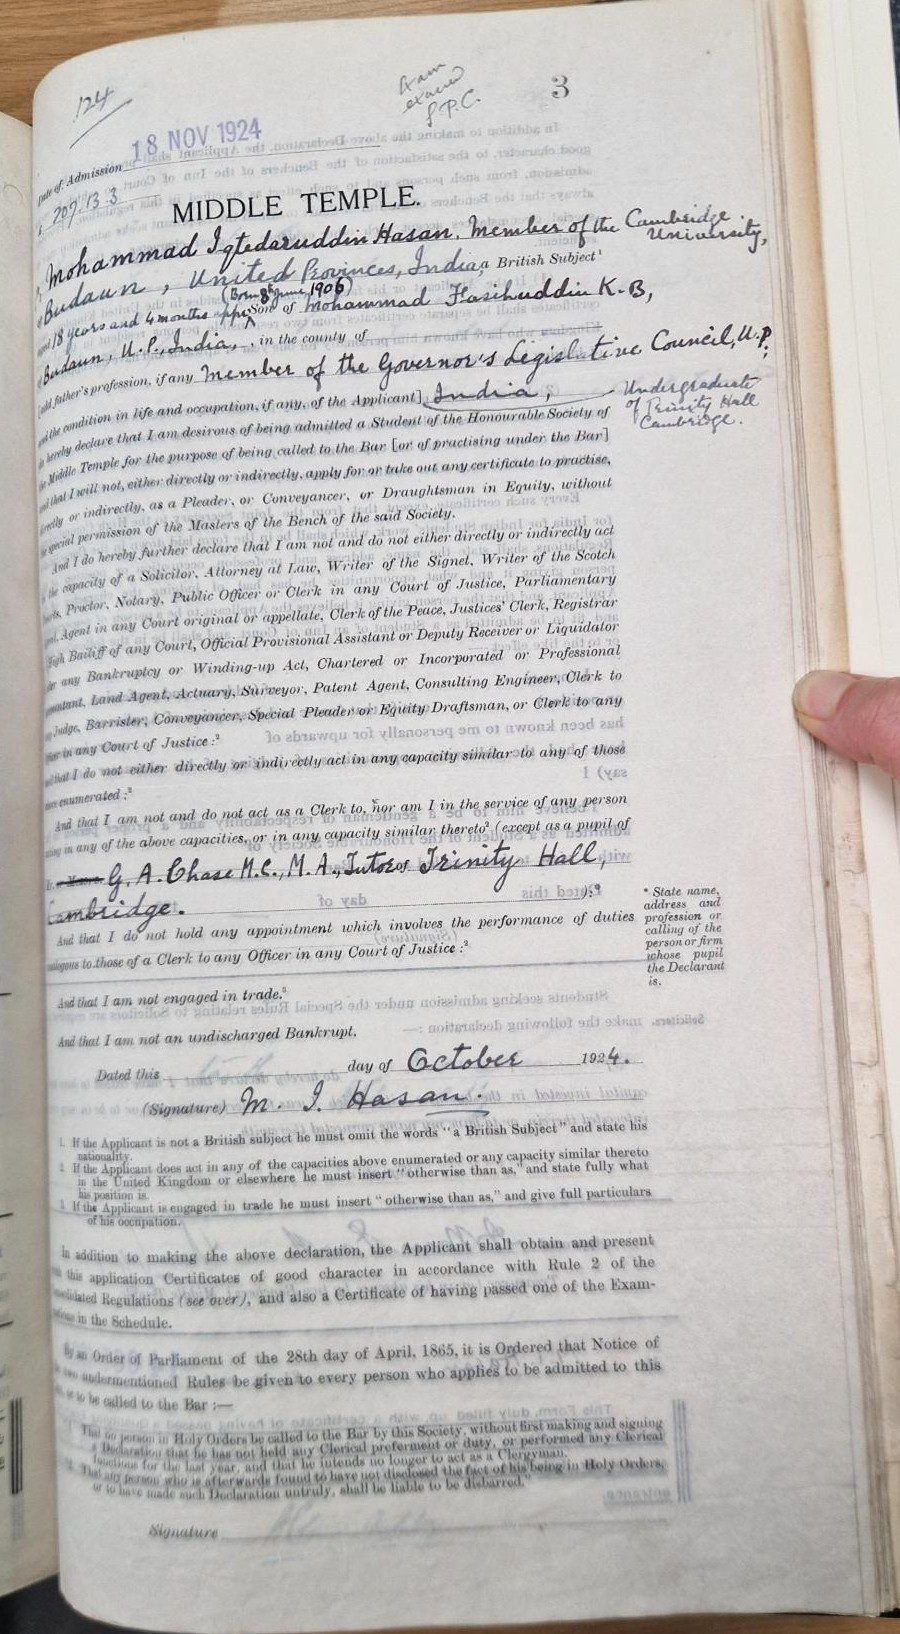 124
3
18 NOV 1924
Date of Admission
209.13.3
MIDDLE TEMPLE.
Mohammad Iqtedaruddin Hasan, Member of the Cambridge University,
of Budaun, United Provinces, India, a British Subject¹
(Born 8th June 1906)
aged 18 years and 4 months Son of Mohammad Fasihuddin K.B,
of Budaun, U.P., India, , in the county of
[add father's profession, if any Member of the Governor's Legislative Council, U.P.,
and the condition in life and occupation, if any, of the Applicant] India,
Undergraduate
of Trinity Hall
Cambridge.
do hereby declare that I am desirous of being admitted a Student of the Honourable Society of
the Middle Temple for the purpose of being called to the Bar [or of practising under the Bar]
and that I will not, either directly or indirectly, apply for or take out any certificate to practise,
directly or indirectly, as a Pleader, or Conveyancer, or Draughtsman in Equity, without
the special permission of the Masters of the Bench of the said Society.
And I do hereby further declare that I am not and do not either directly or indirectly act
in the capacity of a Solicitor, Attorney at Law, Writer of the Signet, Writer of the Scotch
Courts, Proctor, Notary, Public Officer or Clerk in any Court of Justice, Parliamentary
Agent, Agent in any Court original or appellate, Clerk of the Peace, Justices' Clerk, Registrar
High Bailiff of any Court, Official Provisional Assistant or Deputy Receiver or Liquidator
under any Bankruptcy or Winding-up Act, Chartered or Incorporated or Professional
Accountant, Land Agent, Actuary, Surveyor, Patent Agent, Consulting Engineer, Clerk to
any Judge, Barrister, Conveyancer, Special Pleader or Equity Draftsman, or Clerk to any
Officer in any Court of Justice :²
And that I do not either directly or indirectly act in any capacity similar to any of those
above enumerated ;²
And that I am not and do not act as a Clerk to, nor am I in the service of any person
acting in any of the above capacities, or in any capacity similar thereto² (except as a pupil of
G. A. Chase M.C., M.A., Tutor of Trinity Hall,
Cambridge. ).*
* State name, address and profession or calling of the person or firm whose pupil the Declarant is.
And that I do not hold any appointment which involves the performance of duties
analogous to those of a Clerk to any Officer in any Court of Justice :²
And that I am not engaged in trade.³
And that I am not an undischarged Bankrupt.
Dated this day of October 1924.
(Signature) M. I. Hasan.
1. If the Applicant is not a British subject he must omit the words "a British Subject" and state his
nationality.
2. If the Applicant does act in any of the capacities above enumerated or any capacity similar thereto
in the United Kingdom or elsewhere he must insert "otherwise than as," and state fully what
his position is.
3. If the Applicant is engaged in trade he must insert "otherwise than as," and give full particulars
of his occupation.
In addition to making the above declaration, the Applicant shall obtain and present
with this application Certificates of good character in accordance with Rule 2 of the
Consolidated Regulations (see over), and also a Certificate of having passed one of the Exam-
inations in the Schedule.
By an Order of Parliament of the 28th day of April, 1865, it is Ordered that Notice of
the undermentioned Rules be given to every person who applies to be admitted to this
or to be called to the Bar :—
That no person in Holy Orders be called to the Bar by this Society, without first making and signing
a Declaration that he has not held any Clerical preferment or duty, or performed any Clerical
functions for the last year, and that he intends no longer to act as a Clergyman.
That any person who is afterwards found to have not disclosed the fact of his being in Holy Orders,
or to have made such Declaration untruly, shall be liable to be disbarred."
Signature